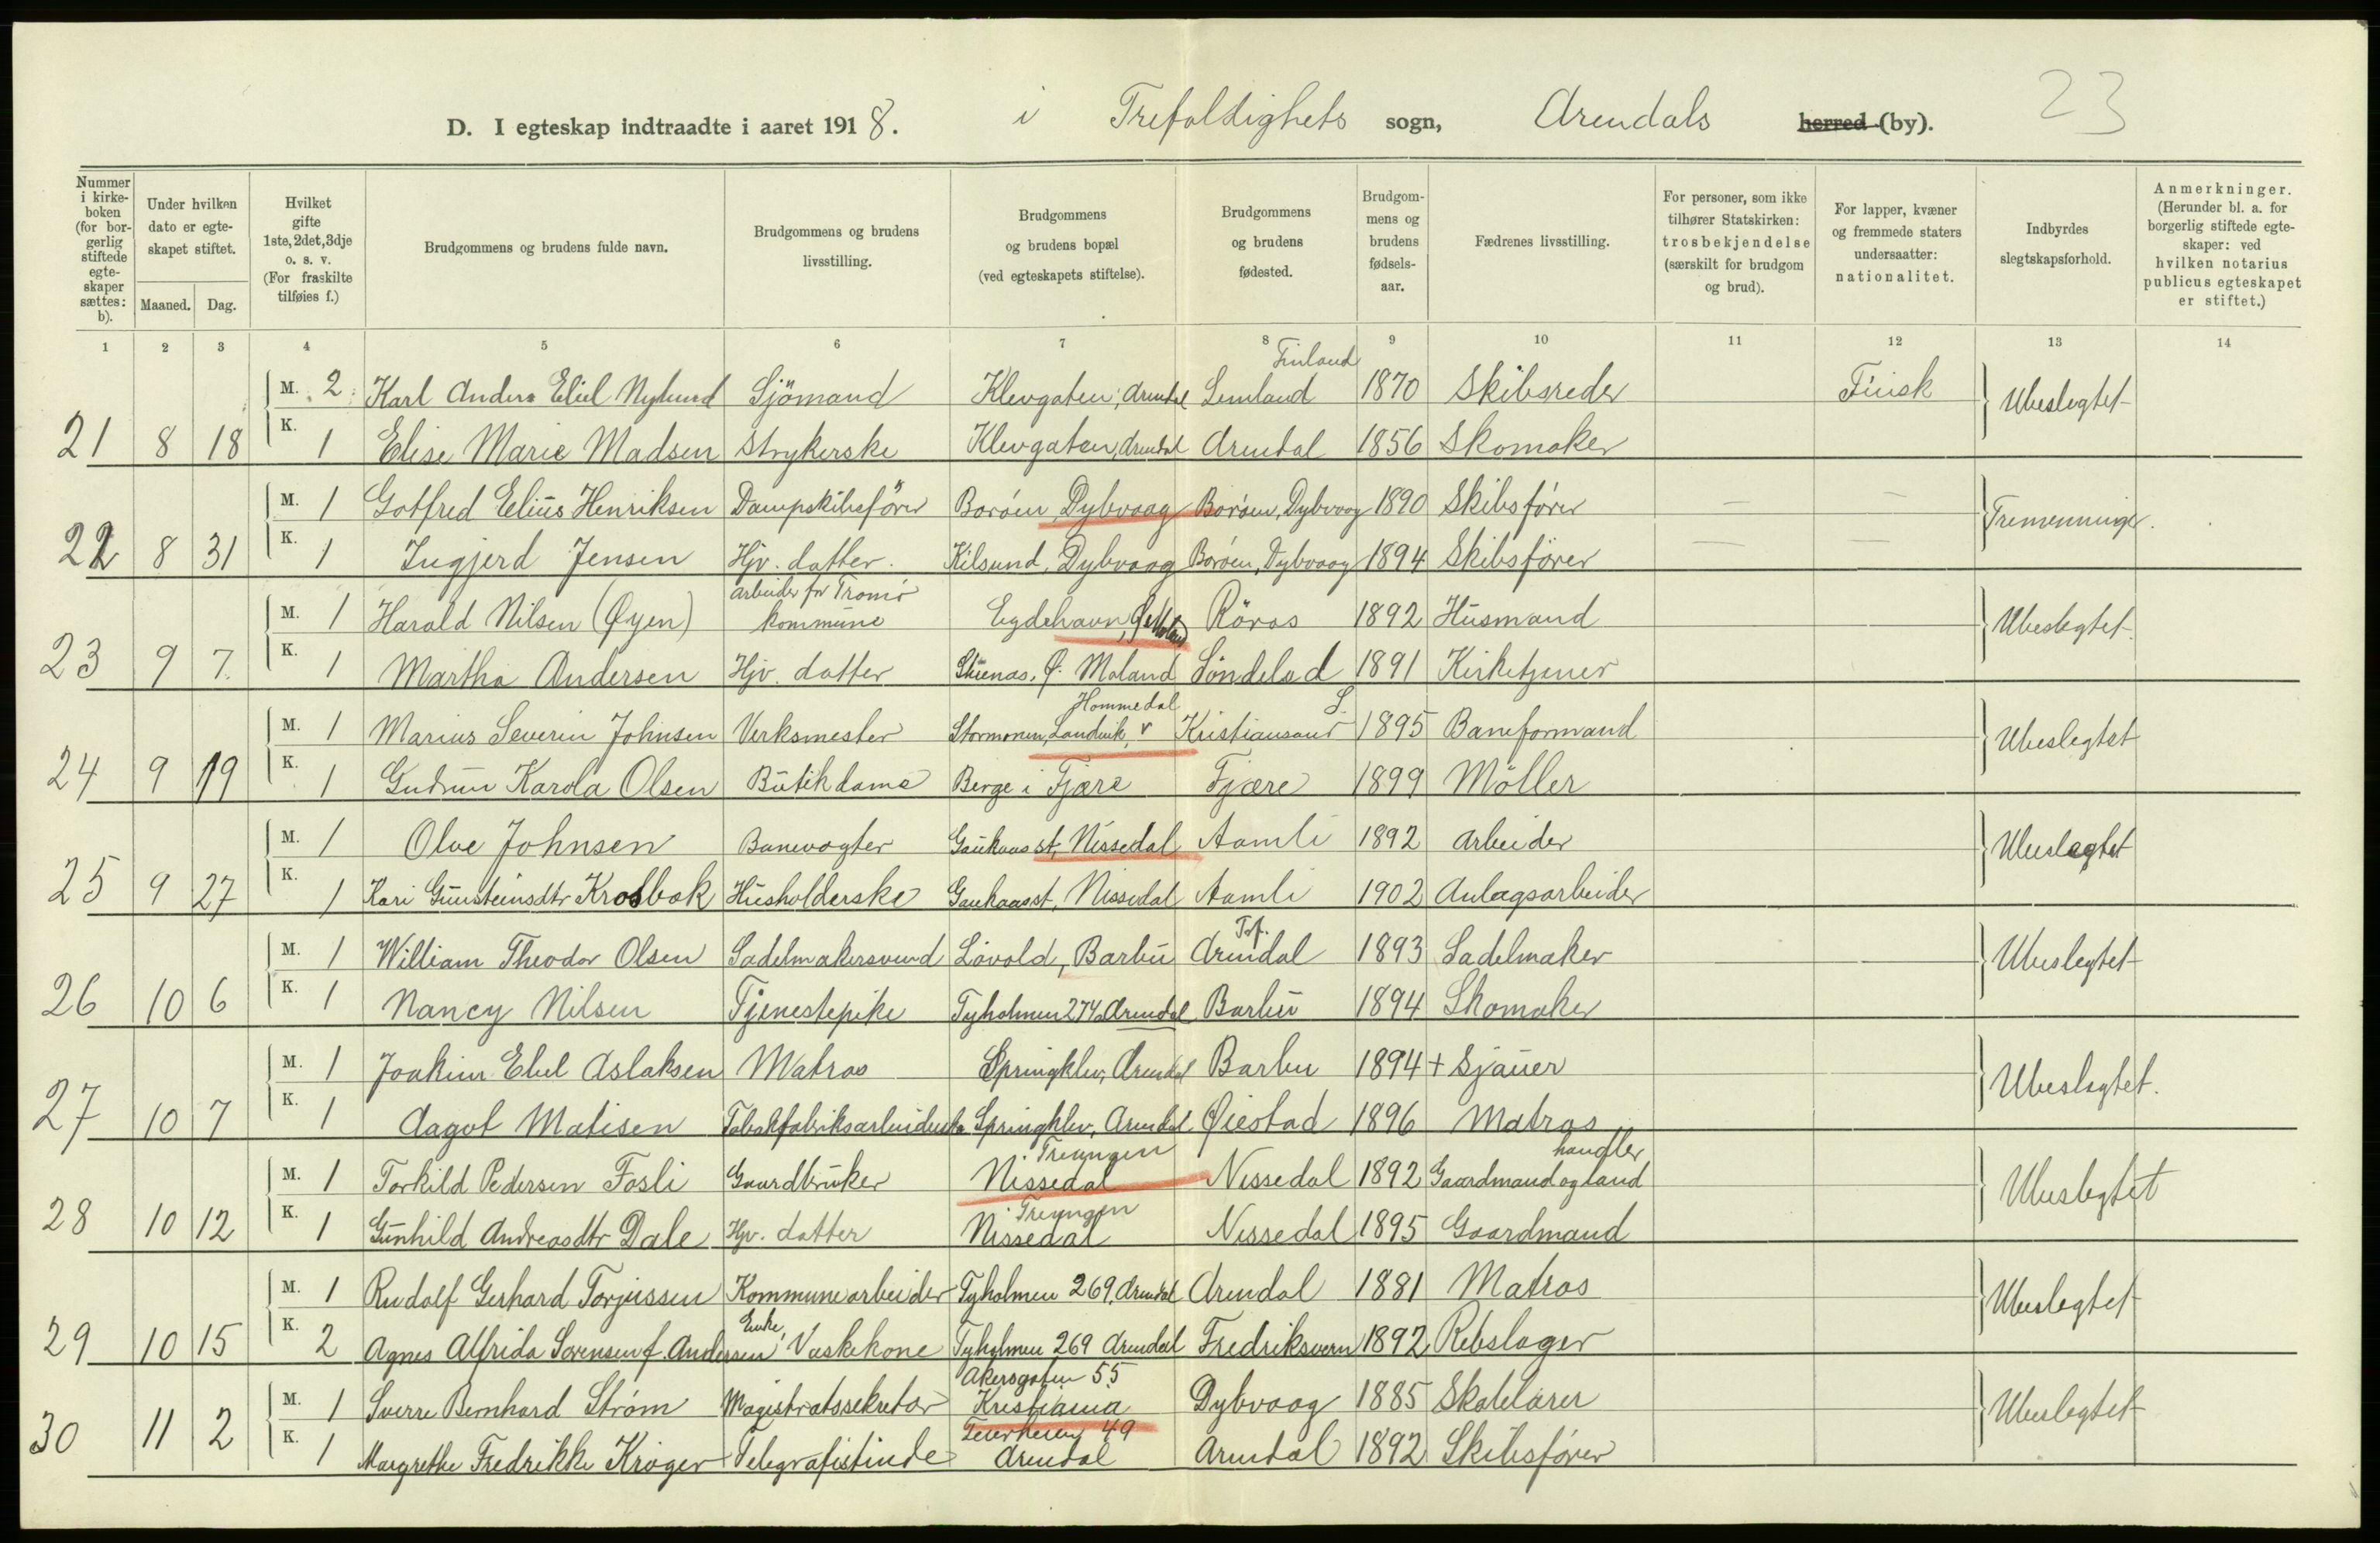 D. I egteskap indtraadte i aaret 1918. i Trefoldighets sogn, Arendals herred (by). 23
Nummer i kirkeboken (for borgerlig stiftede egteskaper sættes: b). Under hvilken dato er egteskapet stiftet. Maaned. Dag. Hvilket gifte 1ste, 2det, 3dje o. s. v. (For fraskilte tilføies f.) Brudgommens og brudens fulde navn. Brudgommens og brudens livsstilling. Brudgommens og brudens bopæl (ved egteskapets stiftelse). Brudgommens og brudens fødested. Brudgommens og brudens fødselsaar. Fædrenes livsstilling. For personer, som ikke tilhører Statskirken: trosbekjendelse (særskilt for brudgom og brud). For lapper, kvæner og fremmede staters undersaatter: nationalitet. Indbyrdes slegtskapsforhold. Anmerkninger. (Herunder bl. a. for borgerlig stiftede egteskaper: ved hvilken notarius publicus egteskapet er stiftet.)
1 2 3 4 5 6 7 8 9 10 11 12 13 14
M. 2 Karl Anders Eliel Nylund Sjömand Klevgaten, Arendal Lemland Finland 1870 Skibsreder Finsk Ubeslegtet
21 8 18 K. 1 Elise Marie Madsen Strykerske Klevgaten, Arendal Arendal 1856 Skomaker
M. 1 Gotfred Elius Henriksen Dampskibsfører Borøen, Dybvaag Borøen, Dybvaag 1890 Skibsfører — — Tremenninger.
22 8 31 K. 1 Ingjerd Jensen Hjv. datter. Kilsund, Dybvaag Borøen, Dybvaag 1894 Skibsfører — —
M. 1 Harald Nilsen (Øyen) arbeider for Tromö kommune Eydehavn, Ø. Moland Röros 1892 Husmand Ubeslegtet.
23 9 7. K. 1 Martha Andersen Hjv. datter Ø. Moland Søndeled 1891 Kirketjener
M. 1 Marius Severin Johnsen Verksmester Stormoen, Landvik, Hommedal Kristiansand S. 1895 Baneformand Ubeslegtet
24 9 19 K. 1 Gudrun Karola Olsen Butikdame Berge i Fjære Fjære 1899 Möller
M. 1 Olve Johnsen Banevogter Gaukaas st, Nissedal Aamli 1892 arbeider Ubeslegtet
25 9 27 K. 1 Kari Gunsteinsdtr Krosbok Husholderske Gaukaas st, Nissedal Aamli 1902 Anlægsarbeider
M. 1 William Theodor Olsen Sadelmakersvend Løvold, Barbu Arendal Trf. 1893 Sadelmaker Ubeslegtet
26 10 6 K. 1 Nancy Nilsen Tjenestepike Tyholmen 274, Arendal Barbu 1894 Skomaker
M. 1 Joakim Elul Aslaksen Matros Springklev, Arendal Barbu 1894 + Sjauer Ubeslegtet.
27 10 7 K. 1 Aagot Matisen Tobakfabriksarbeiderske Springklev, Arendal Øiestad 1896 Matros
M. 1 Torkild Pedersen Fosli Gaardbruker Treungen Nissedal Nissedal 1892 Gaardmand og landhandler Ubeslegtet
28 10 12 K. 1 Gunhild Andreasdtr Dale Hjv. datter Treungen Nissedal Nissedal 1895 Gaardmand
M. 1 Rudolf Gerhard Torjussen Kommunearbeider Tyholmen 269, Arendal Arendal 1881 Matros Ubeslegtet
29 10 15 K. 2 Agnes Alfrida Sørensen f. Andersen Enke, Vaskekone Tyholmen 269 Arendal Fredriksvern 1892 Rebslager
M. 1 Sverre Bernhard Strøm Magistratssekretær Akersgaten 55 Kristiania Dybvaag 1885 Skolelærer Ubeslegtet
30 11 2 K. 1 Margrethe Fredrikke Krøger Telegrafistinde 49 Arendal Arendal 1892 Skibsfører